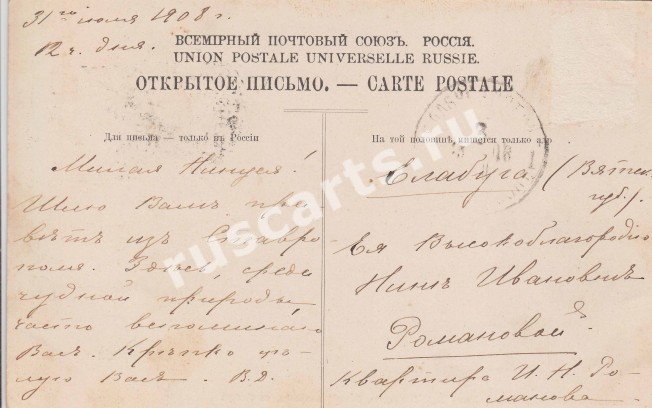 31го июля 1908 г.
12 ч. дня.
ВСЕМІРНЫЙ ПОЧТОВЫЙ СОЮЗЪ. РОССІЯ.
UNION POSTALE UNIVERSELLE RUSSIE.
ОТКРЫТОЕ ПИСЬМО. — CARTE POSTALE
Для письма — только въ Россіи
Милая Нинуся!
Шлю Вамъ при-
вѣтъ изъ Ставро
поля. Здѣсь, среди
чудной природы
часто вспоминаю
Васъ. Крѣпко цѣ-
лую Васъ. В.Д.
На той половинѣ пишется только адр
Елабуга (Вятск.
губ.).
Ея Высокоблагородію
Нинѣ Ивановнѣ
Романовой
Квартира И. Н. Ро-
манова.
ruscarts.ru